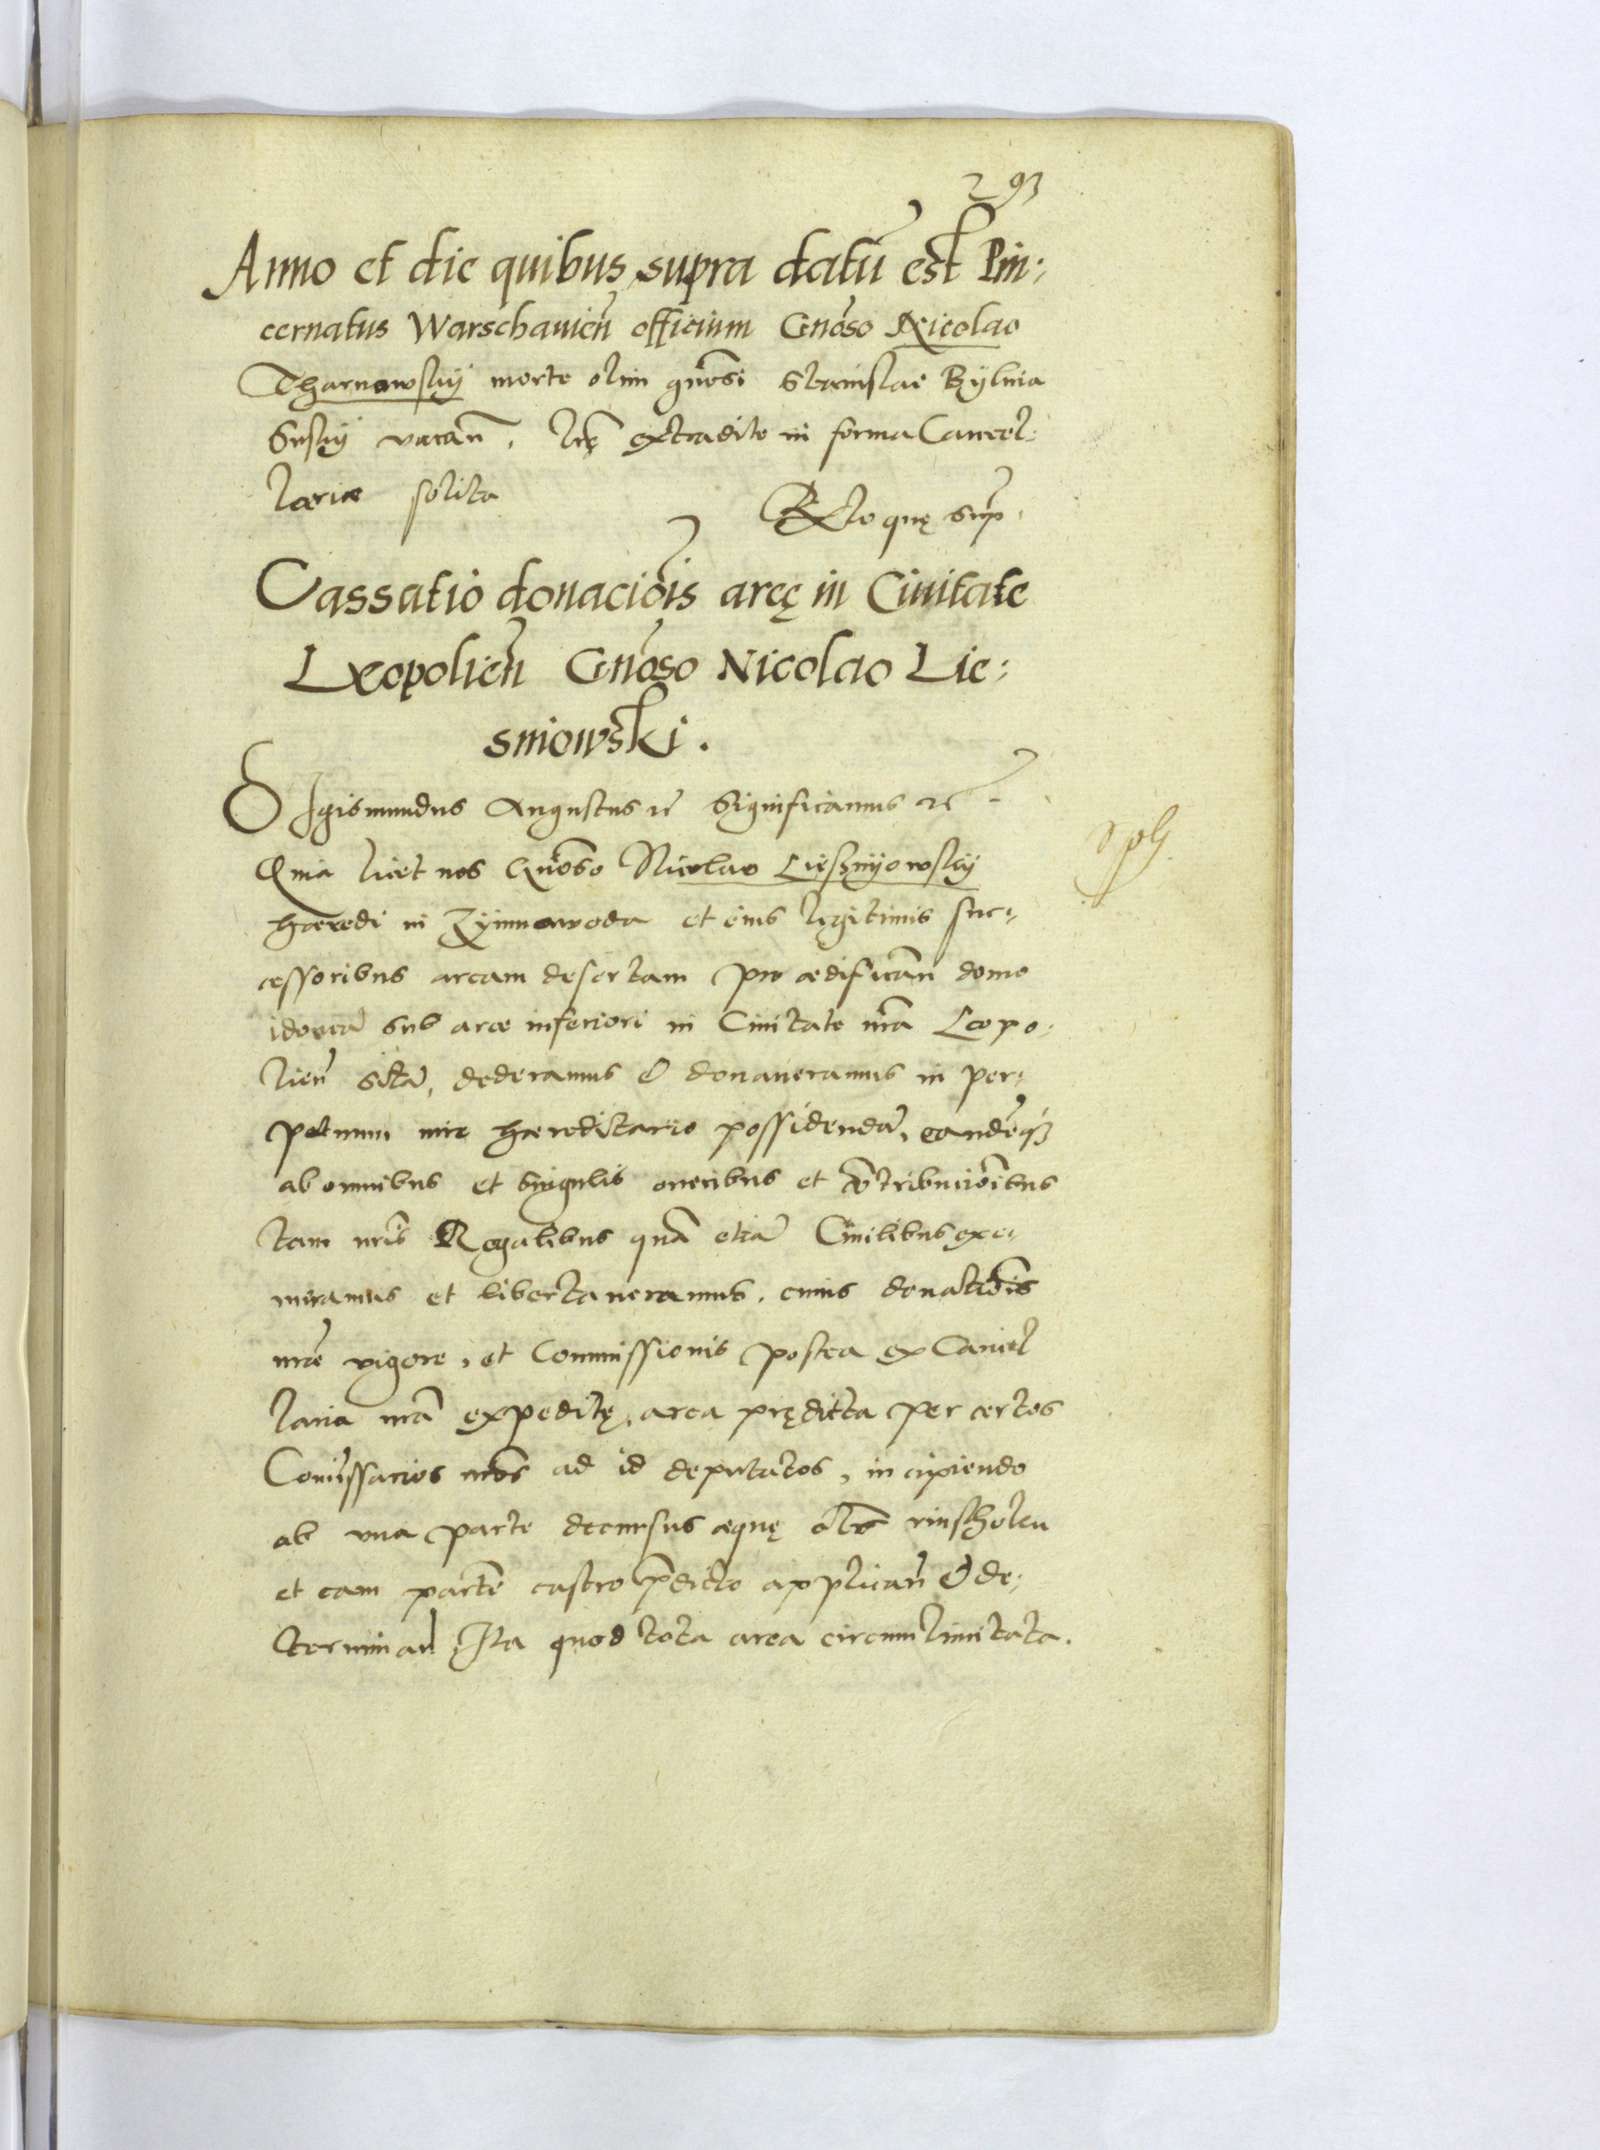 293
Anno et die quibus supra datũ est Pin:
cernatus Warschavieñ officium Gñoso Nicolao
Tharnowskÿ morte olim gñosi Stanislai Bÿlina
vacañ, lrę extradite in forma Cancel:
lariæ solita
Rlo quę supͥ
Cassatio donaciõis areę in Ciuitate
Leopolieñ Gñoso Nicolao Lie:
sniowski.
Sigismundus Augustus ꝛc̃ Significamus ꝛc̃
Quia licet nos Gñoso Nicolao Liesznÿowskÿ
hæredi in Zÿmnawoda et eius legitimis suc:
cessoribus aream desertam pro ædificañ domo
idonea sub arce inferiori in Ciuitate nr̃a Leopo:
lieñ sitã, dederamus & donaueramus in per:
petuum iure hæreditario possidendã, eandẽqꝫ
ab omnibus et singulis oneribus et cõtribuciõibus
tam nr̃is Regalibus quã etiã Ciuilibus exe:
meramus et libertaueramus, cuius donatiõis
nr̃æ vigore, et Commissionis postea ex Cancel
laria nr̃a expeditę, area prędicta per certos
Com̃issarios nr̃os ad id deputatos, incipiendo
ab una parte decursus aquę rinscholcu
et eam partẽ castro p̃dicto applicañ & de:
terminañ Ita quod tota area circumlimitata.